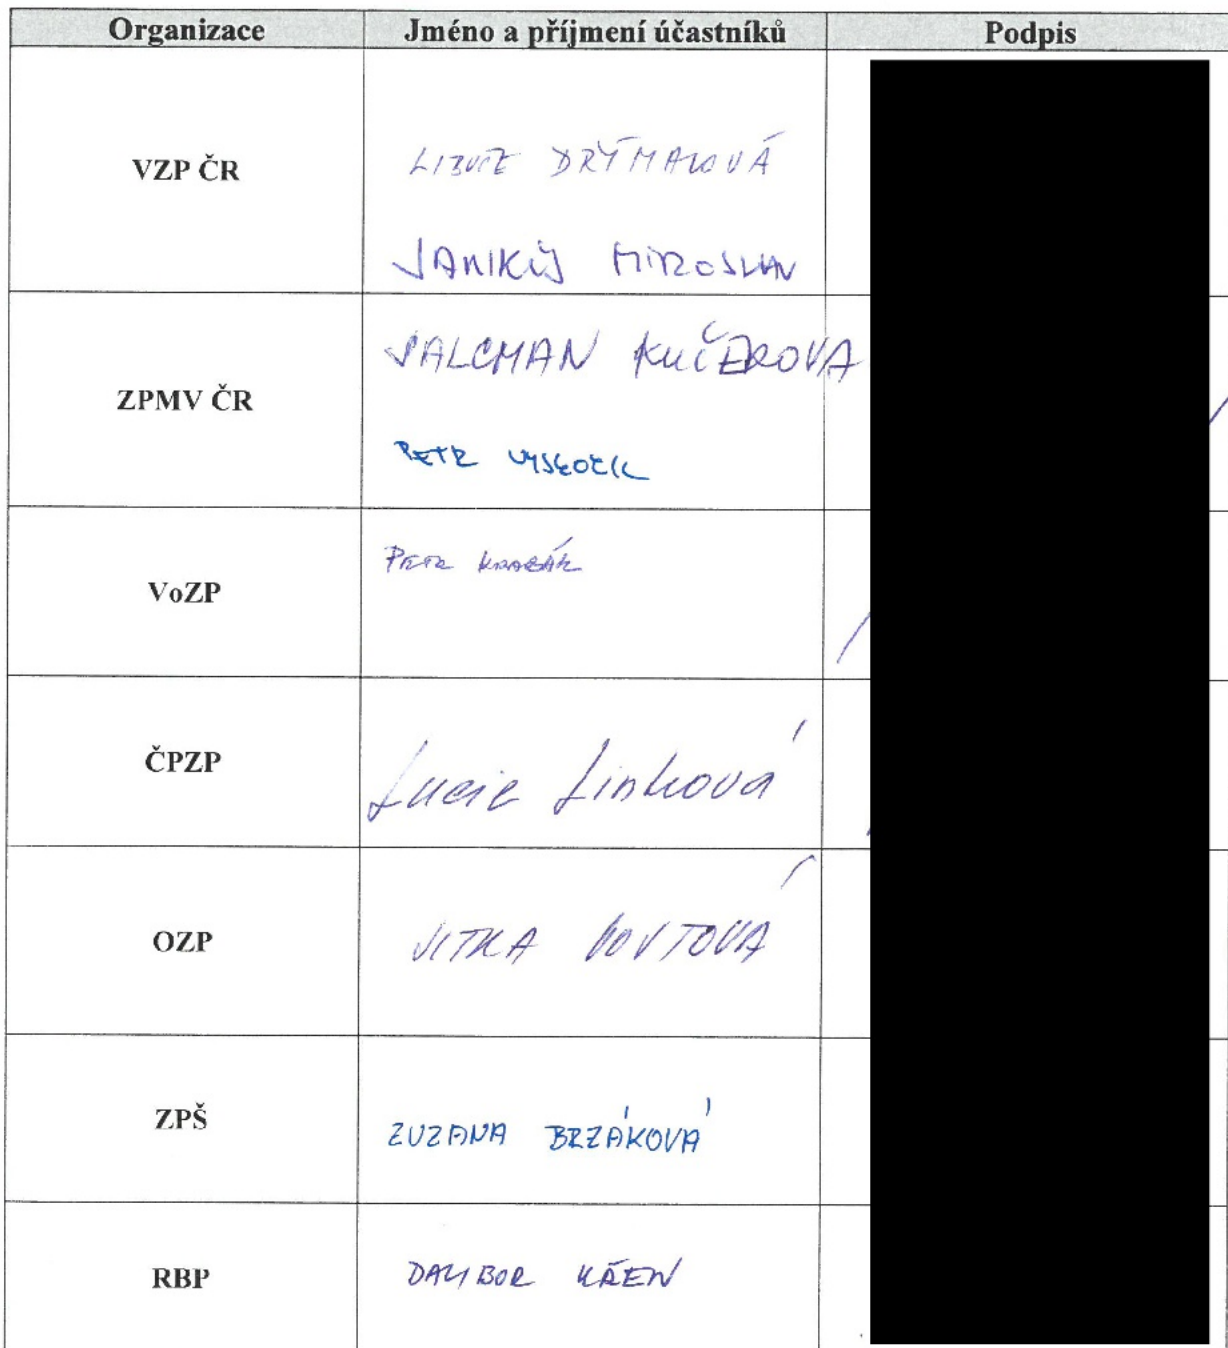 Organizace Jméno a příjmení účastníků Podpis
VZP ČR
LIBUŠE DRÝMALOVÁ
MIROSLAV
ZPMV ČR
SALCMAN KUČEROVÁ
PETR VYSKOČIL
VoZP
PETR
ČPZP
Lucie Linhová
OZP
JITKA VOJTOVÁ
ZPŠ
ZUZANA BRZÁKOVÁ
RBP
DALIBOR KŘEN